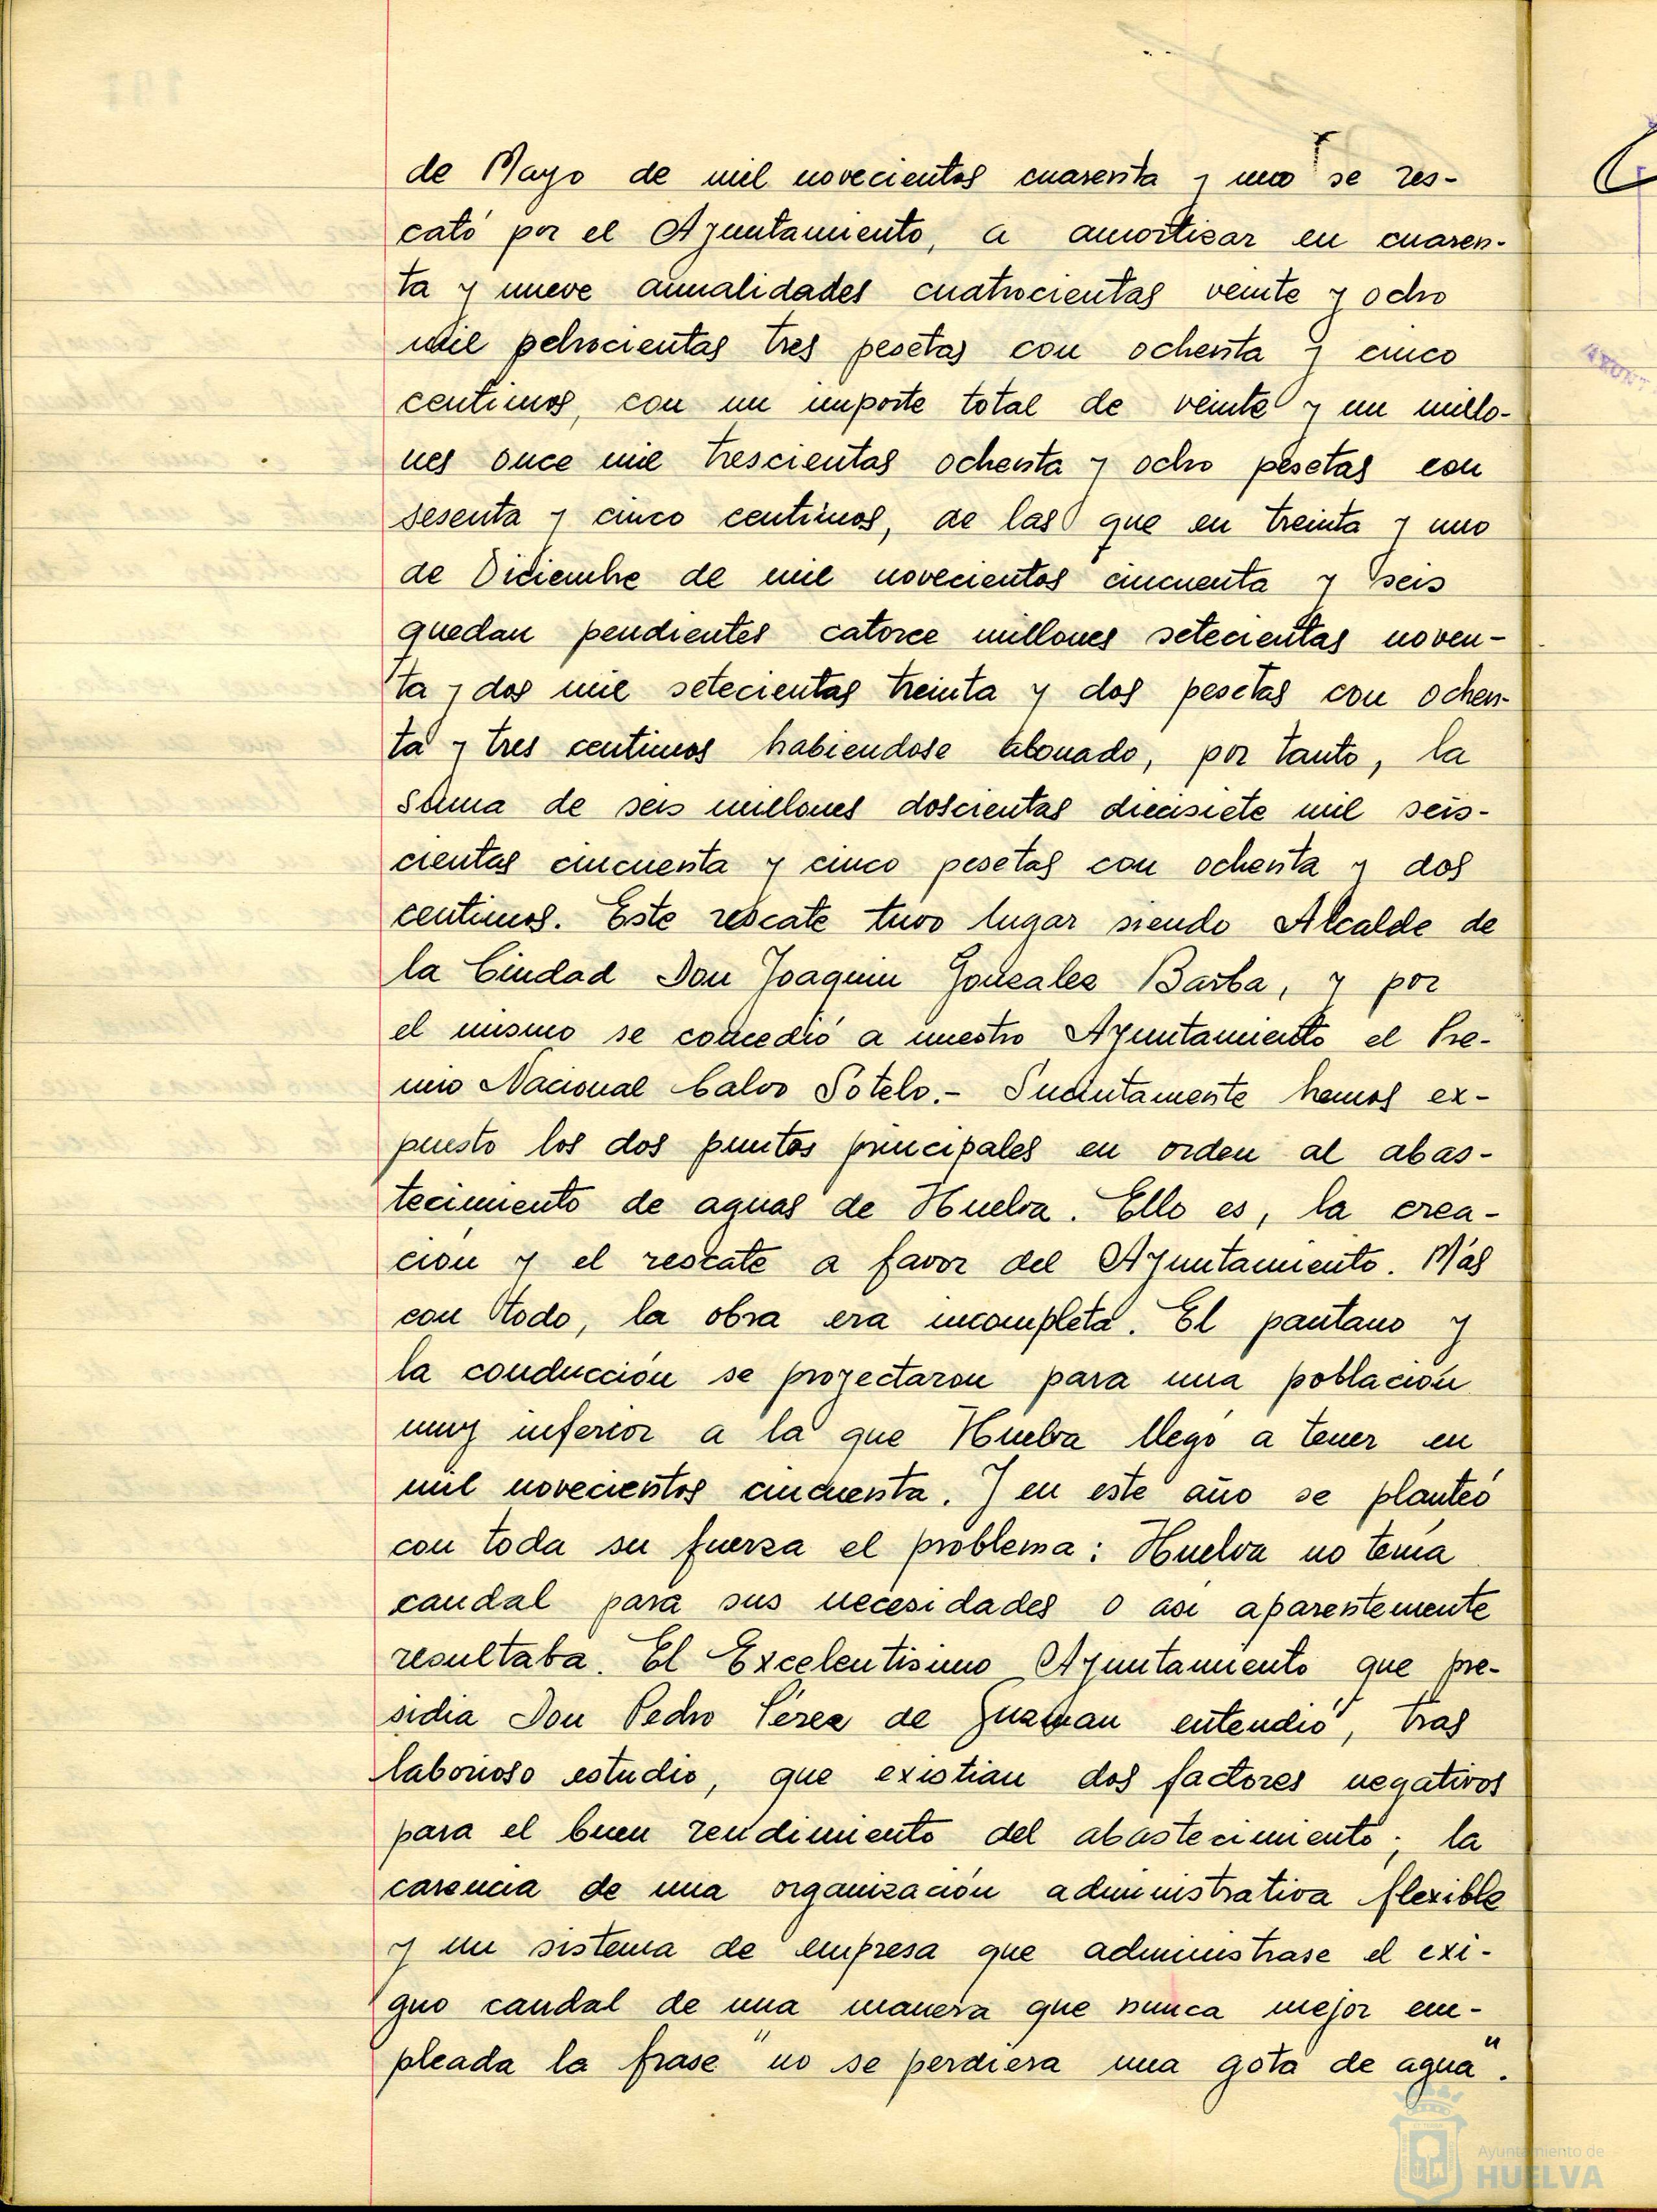 de Mayo de mil novecientos cuarenta y uno se res-
cató por el Ayuntamiento, a amortizar en cuaren-
ta y nueve anualidades cuatrocientas veinte y ocho
mil tres pesetas con ochenta y cinco
centimos, con un importe total de veinte y un millo-
nes once mil trescientas ochenta y ocho pesetas con
sesenta y cinco centimos, de las que en treinta y uno
de Diciembre de mil novecientos cincuenta y seis
quedan pendientes catorce millones setecientas noven-
ta y dos mil setecientas treinta y dos pesetas con ochen-
ta y tres centimos habiendose abonado, por tanto, la
suma de seis millones doscientas diecisiete mil seis-
cientas cincuenta y cinco pesetas con ochenta y dos
centimos. Este rescate tuvo lugar siendo Alcalde de
la Ciudad Don Joaquin Gonzalez Barba, y por
el mismo se concedió a nuestro Ayuntamiento el Pre-
mio Nacional Calvo Sotelo.- Sucintamente hemos ex-
puesto los dos puntos principales en orden al abas-
tecimiento de aguas de Huelva. Ello es, la crea-
cion y el rescate a favor del Ayuntamiento. Más
con todo, la obra era incompleta. El pantano y
la conducción se proyectaron para una población
muy inferior a la que Huelva llegó a tener en
mil novecientos cincuenta. Y en este año se planteó
con toda su fuerza el problema: Huelva no tenía
caudal para sus necesidades o asi aparentemente
resultaba. El Excelentisimo Ayuntamiento que pre-
sidia Don Pedro Pérez de Guzman entendió, tras
laborioso estudio, que existian dos factores negativos
para el buen rendimiento del abastecimiento; la
carencia de una organización administrativa flexible
y un sistema de empresa que administrase el exi-
guo caudal de una manera que nunca mejor em-
pleada la frase "no se perdiera una gota de agua".
Ayuntamiento de
HUELVA